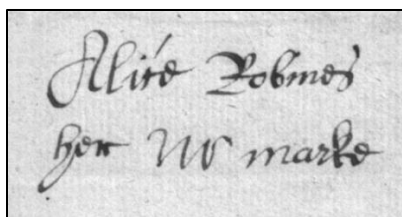 Alice Robines
her marke